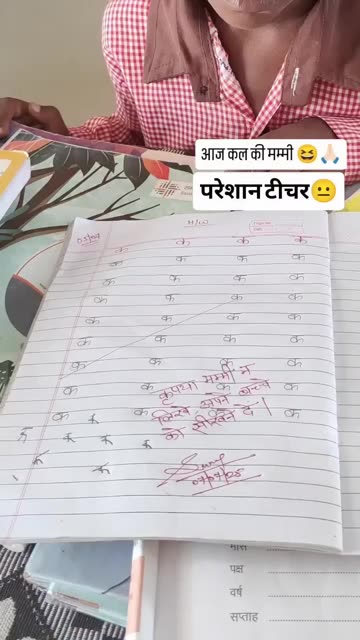 आज कल की मम्मी 😆🙏🏻
परेशान टीचर😐
H/W
क क क क
क क क क
क क क क
क क क क
क क क क
क क क क
क क क क
क क क क
क क क क
कृपया मम्मी न
लिखे अपने बच्चे
को सीखने दे।
क
क क क क
क क
07/07/25
मास
पक्ष
वर्ष
सप्ताह